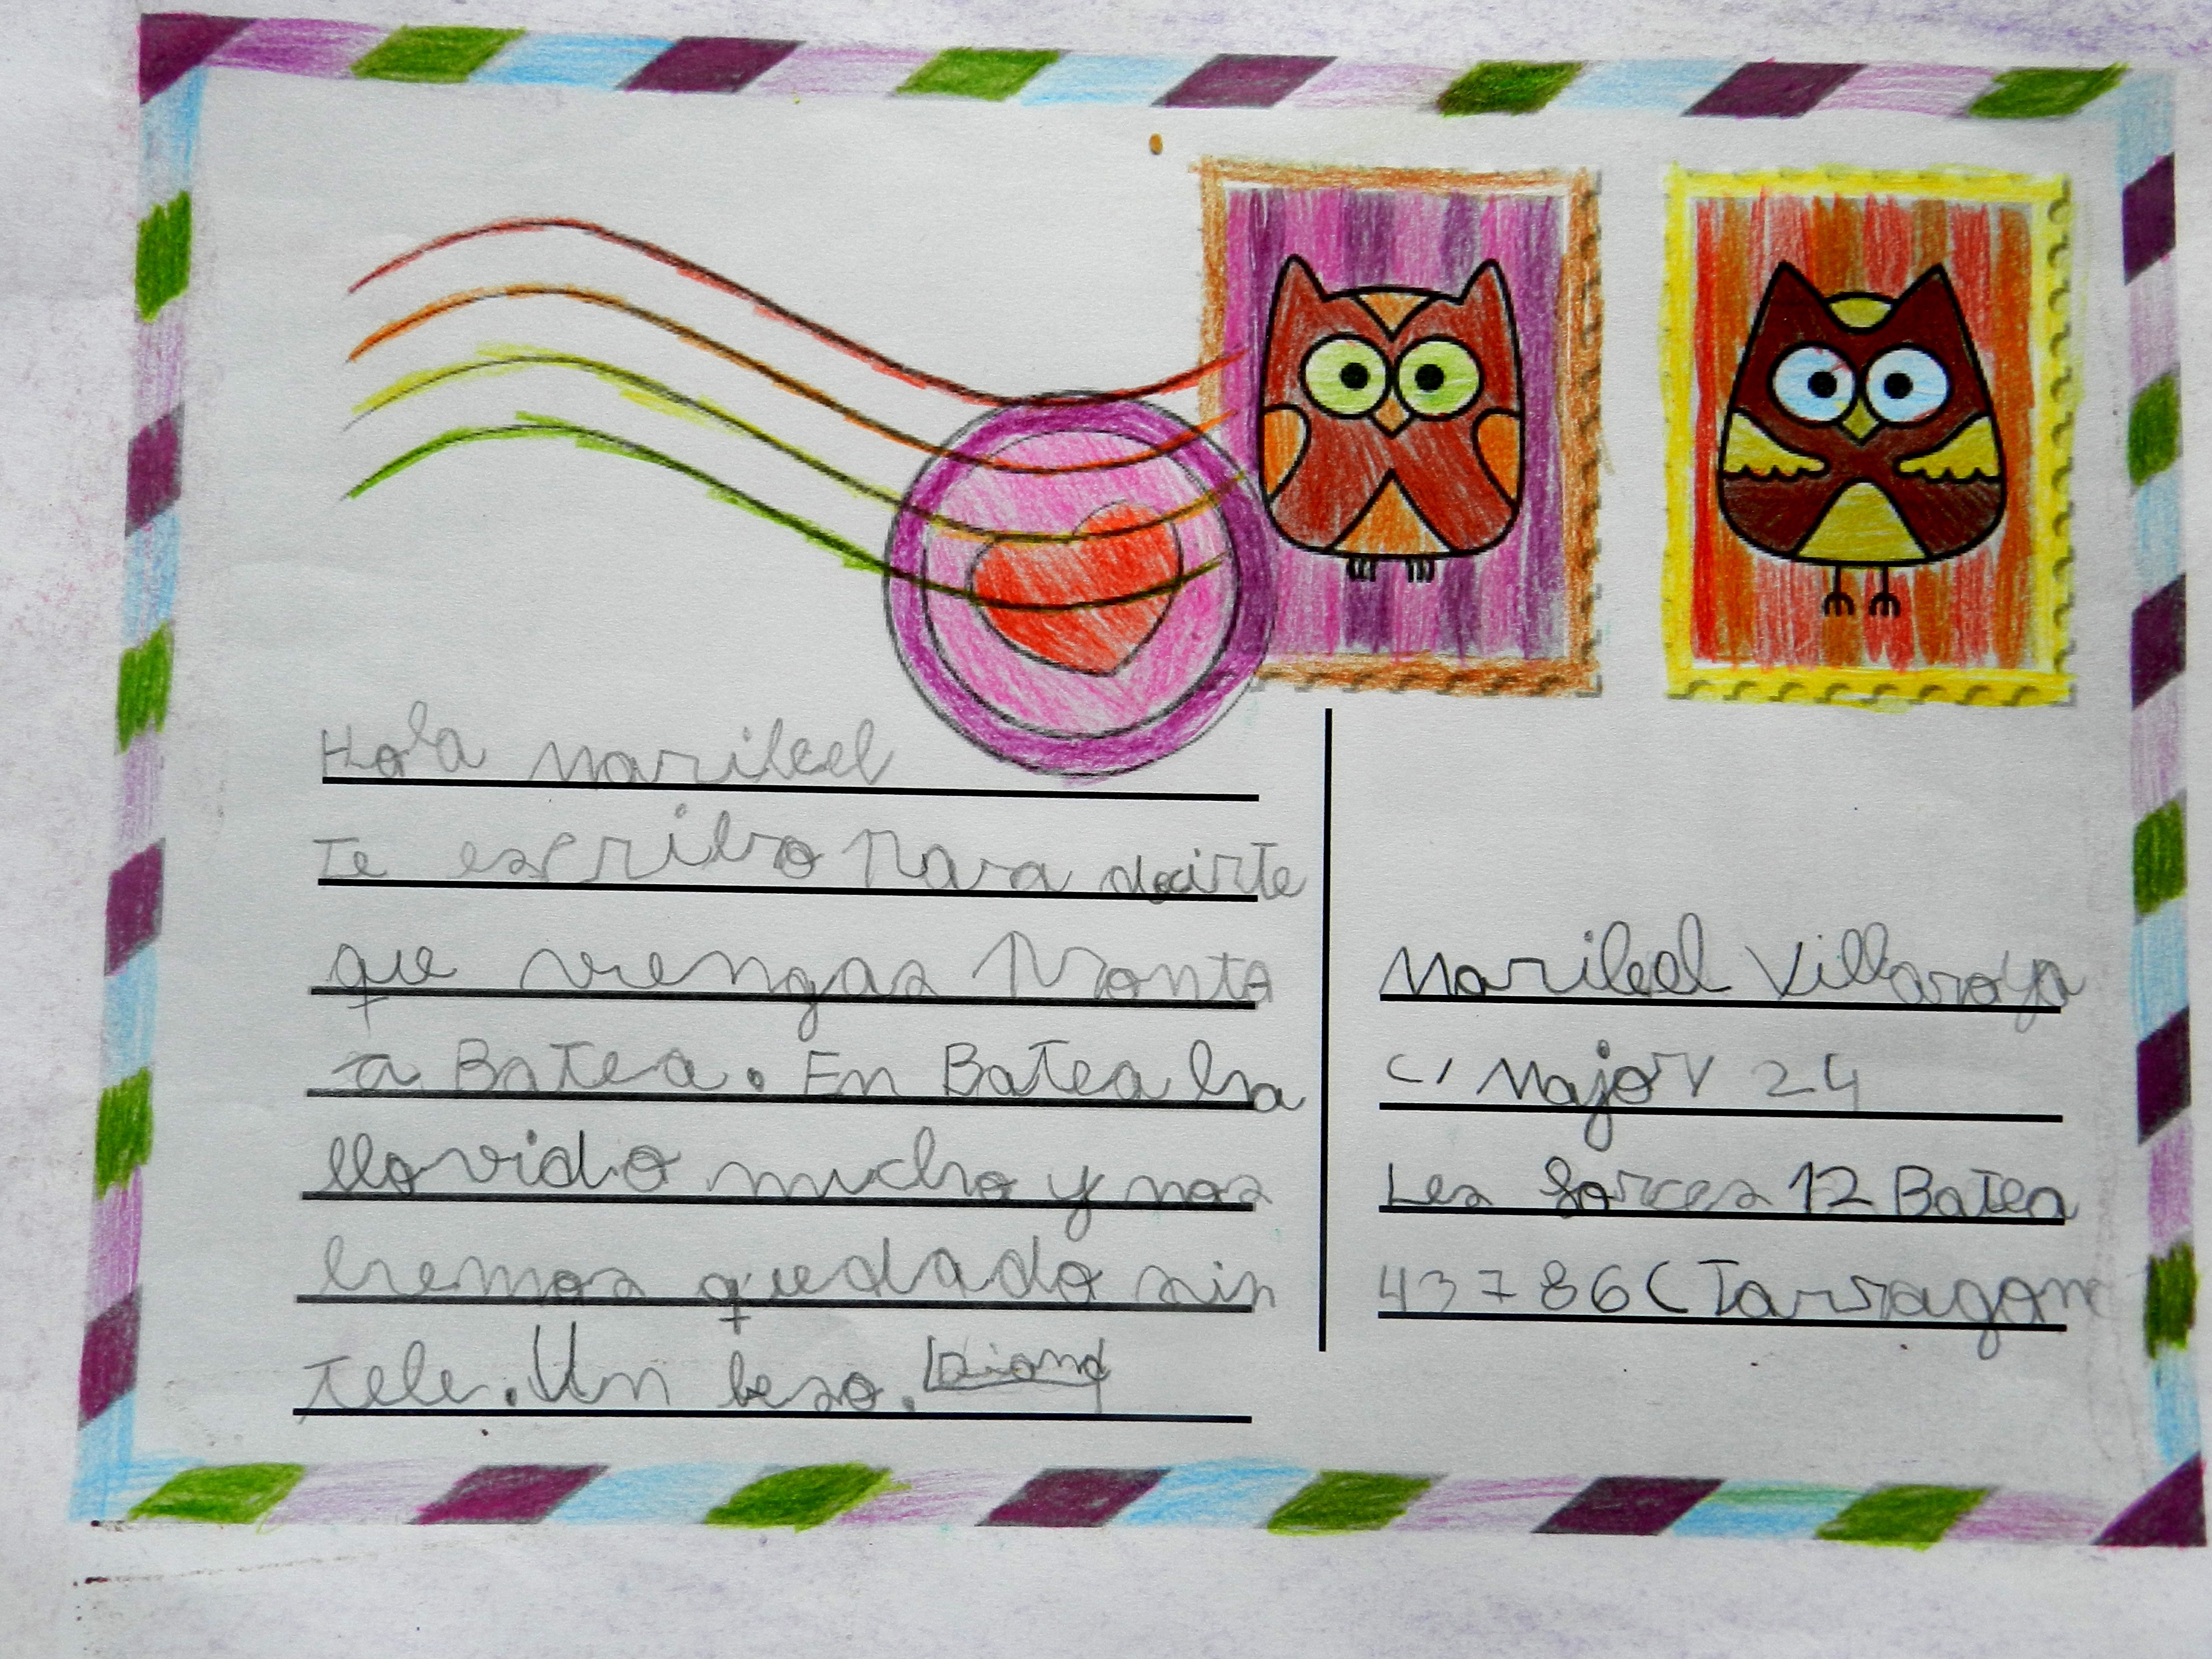 Hola Maribel
Te escribo Para decirte
que vengas Pronto
a Batea. En Batea ha
llovido mucho y nos
hemos quedado sin
tele. Un beso. Diana
Maribel Villaroya
C/ Major 24
Les forces 12 Batea
43786 (Tarragona